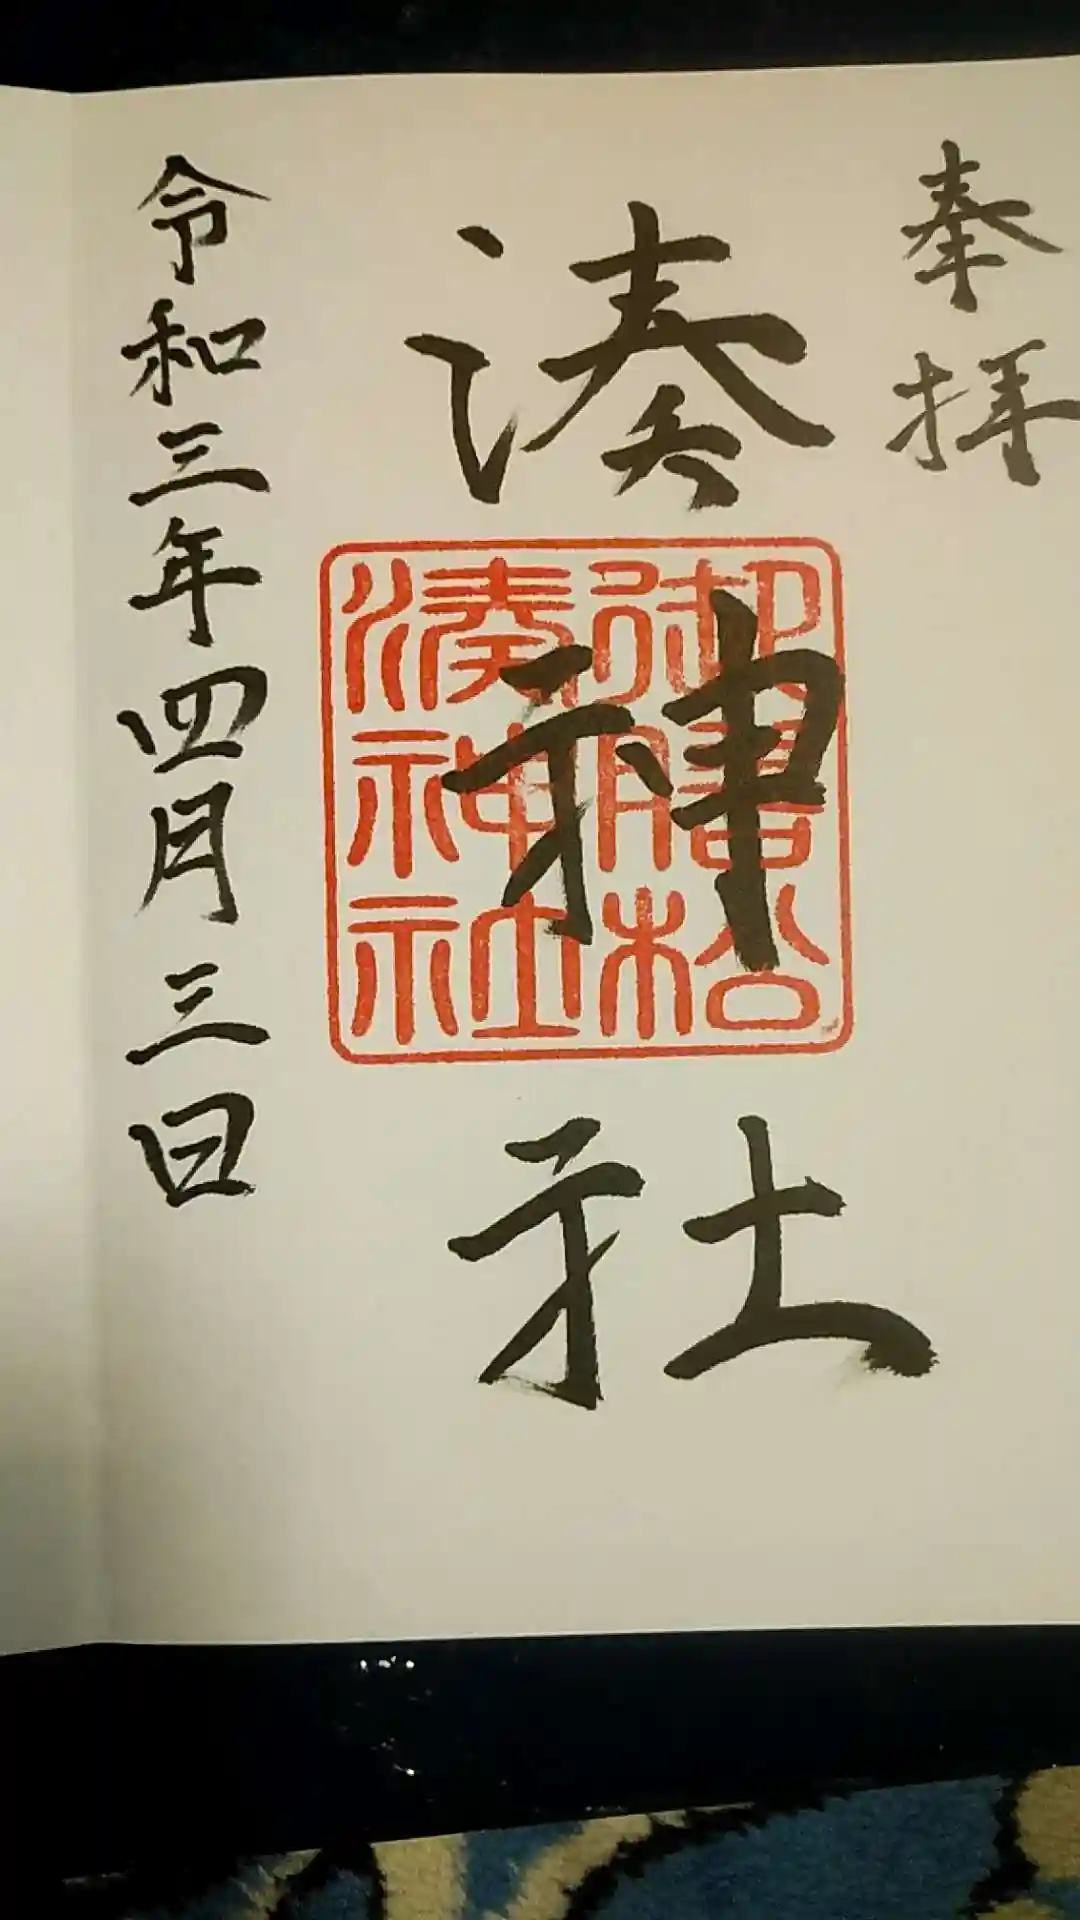 奉拝
湊神社
御膳松
湊神社
令和三年四月三日